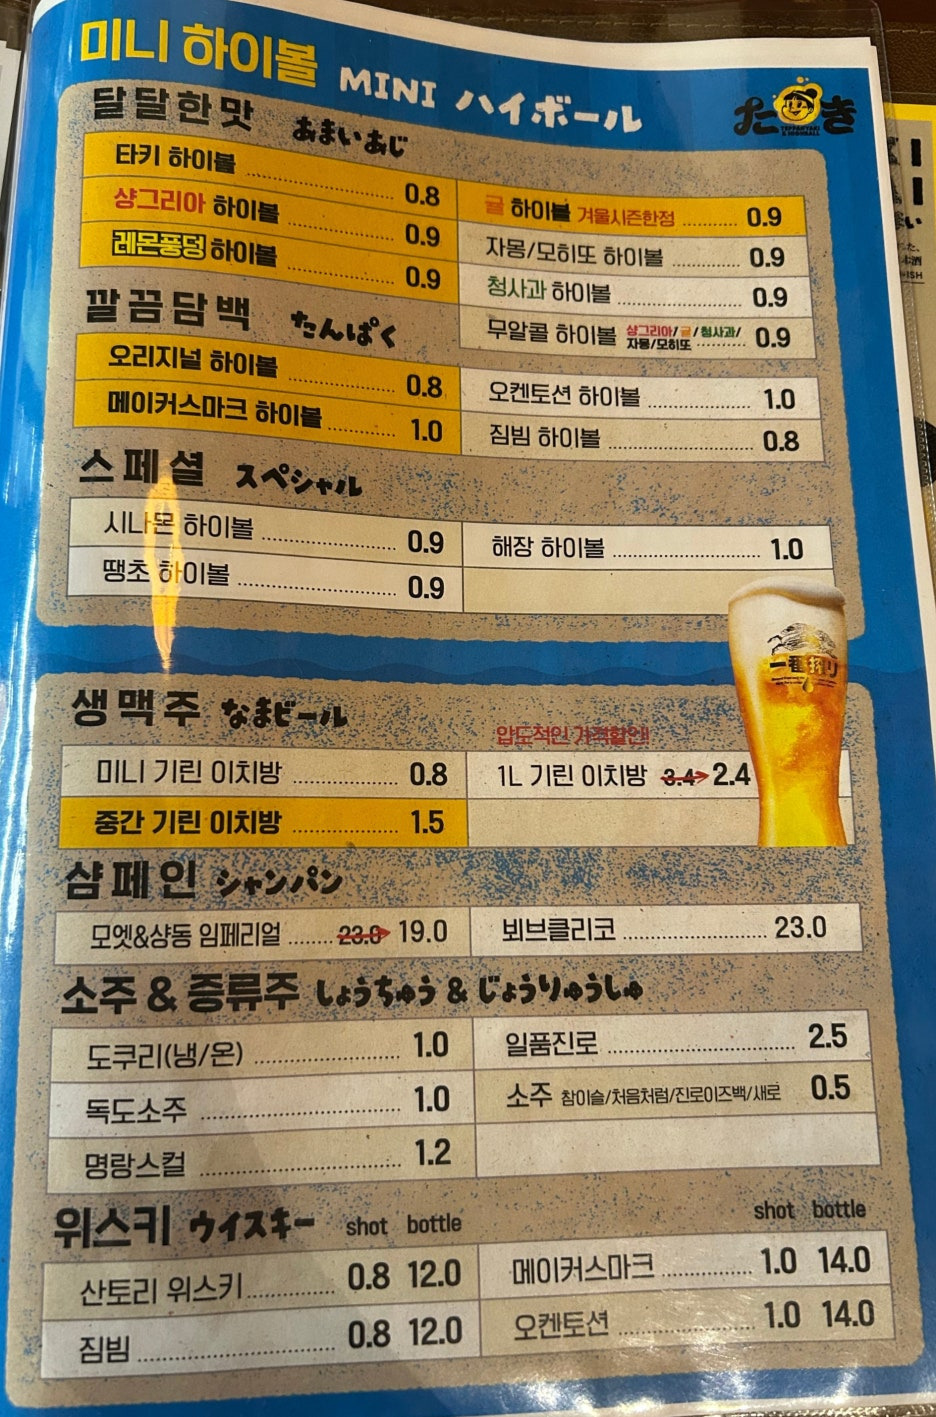 미니 하이볼 MINI ハイボール
たき
TEPPANYAKI
& HIGHBALL
달달한맛 あまいあじ
타키 하이볼 0.8
샹그리아 하이볼 0.9
레몬퐁덩 하이볼 0.9
귤 하이볼 겨울시즌한정 0.9
자몽/모히또 하이볼 0.9
청사과 하이볼 0.9
무알콜 하이볼 샹그리아/귤/청사과/
자몽/모히또 0.9
깔끔담백 たんぱく
오리지널 하이볼 0.8
메이커스마크 하이볼 1.0
오켄토션 하이볼 1.0
짐빔 하이볼 0.8
스페셜 スペシャル
시나몬 하이볼 0.9
땡초 하이볼 0.9
해장 하이볼 1.0
생맥주 なまビール
미니 기린 이치방 0.8
중간 기린 이치방 1.5
압도적인 가격할인!
1L 기린 이치방 3.4 2.4
一番搾り
샴페인 シャンパン
모엣&샹동 임페리얼 23.0 19.0
뵈브클리코 23.0
소주 & 증류주 しょうちゅう & じょうりゅうしゅ
도쿠리(냉/온) 1.0
독도소주 1.0
명랑스컬 1.2
일품진로 2.5
소주 참이슬/처음처럼/진로이즈백/새로 0.5
위스키 ウイスキー shot bottle
산토리 위스키 0.8 12.0
짐빔 0.8 12.0
shot bottle
메이커스마크 1.0 14.0
오켄토션 1.0 14.0